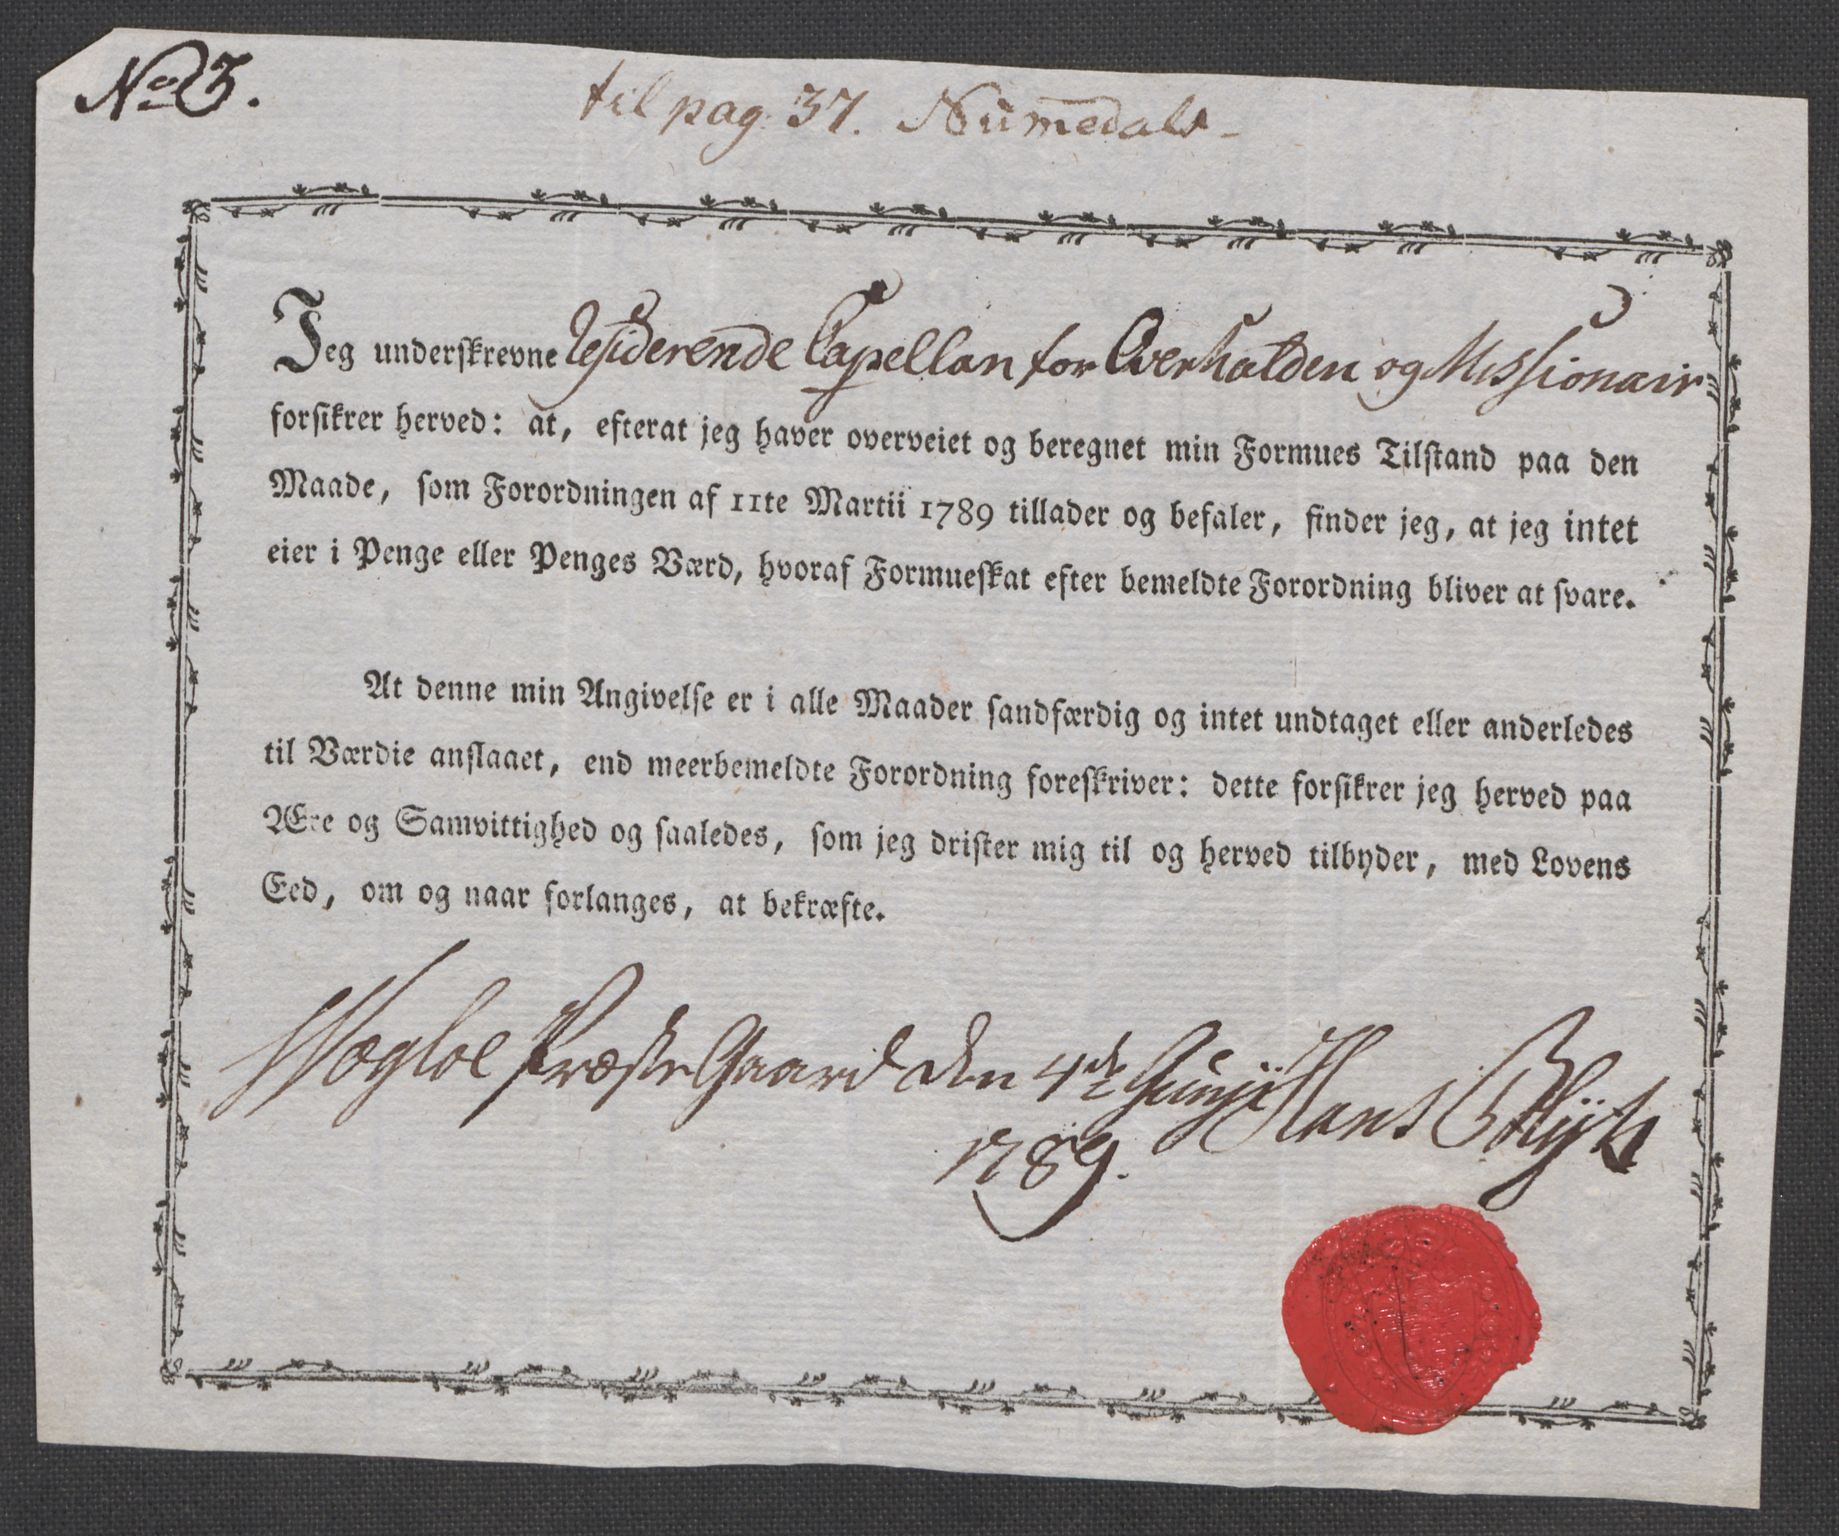 No 3.
til pag. 37. Nummedals
Jeg underskrevne residerende Capellan for Overhalden og Missionair
forsikrer herved: at, efterat jeg haver overveiet og beregnet min Formues Tilstand paa den
Maade, som Forordningen af 11te Martii 1789 tillader og befaler, finder jeg, at jeg intet
eier i Penge eller Penges Værd, hvoraf Formueskat efter bemeldte Forordning bliver at svare.
At denne min Angivelse er i alle Maader sandfærdig og intet undtaget eller anderledes
til Værdie anslaaet, end meerbemeldte Forordning foreskriver: dette forsikrer jeg herved paa
Ære og Samvittighed og saaledes, som jeg drister mig til og herved tilbyder, med Lovens
Eed, om og naar forlanges, at bekræfte.
Præste Gaard den 4de Junii Hans
1789.